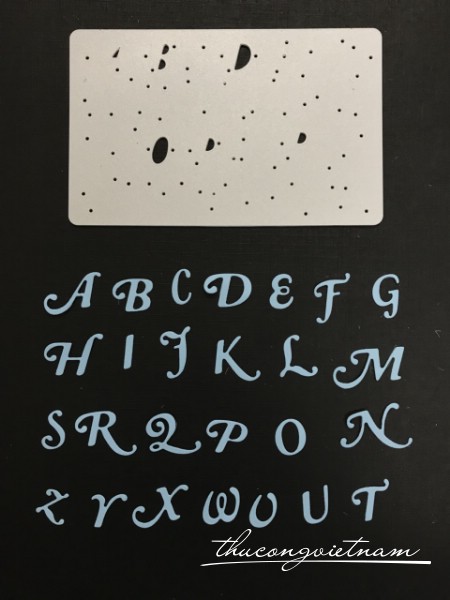 A B C D E F G
H I J K L M
S R Q P O N
Z Y X W U U T
thucongvietnam